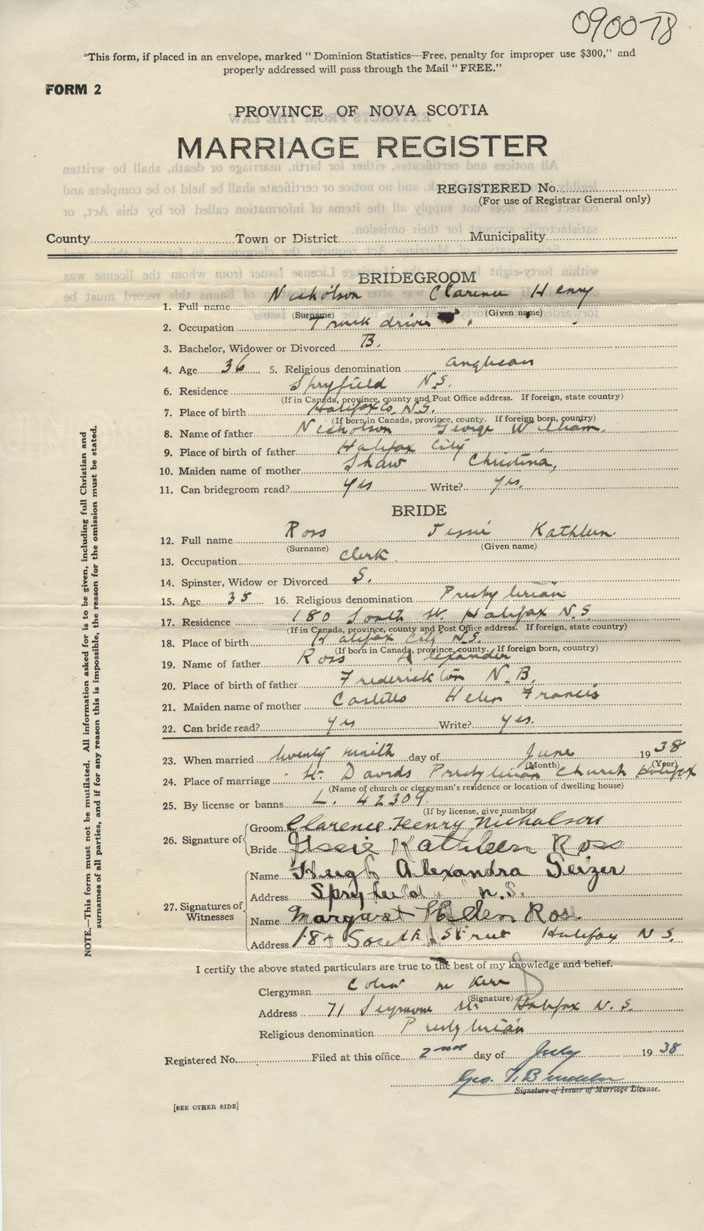 090078
"This form, if placed in an envelope, marked "Dominion Statistics—Free, penalty for improper use $300," and
properly addressed will pass through the Mail "FREE."
FORM 2
PROVINCE OF NOVA SCOTIA
MARRIAGE REGISTER
REGISTERED No.
(For use of Registrar General only)
County Town or District Municipality
BRIDEGROOM
1. Full name Nicholson Clarence Henry
(Surname) (Given name)
2. Occupation Truck driver
3. Bachelor, Widower or Divorced B.
4. Age 36 5. Religious denomination Anglican
6. Residence Spryfield N.S.
(If in Canada, province, county and Post Office address. If foreign, state country)
7. Place of birth Halifax Co. N.S.
(If born in Canada, province, county. If foreign born, country)
8. Name of father Nicholson George William
9. Place of birth of father Halifax City
10. Maiden name of mother Shaw Christina
11. Can bridegroom read? yes Write? yes.
BRIDE
12. Full name Ross Jessie Kathleen
(Surname) (Given name)
13. Occupation Clerk
14. Spinster, Widow or Divorced S.
15. Age 35 16. Religious denomination Presbyterian
17. Residence 180 South St. Halifax N.S
(If in Canada, province, county and Post Office address. If foreign, state country)
18. Place of birth Halifax City N.S.
(If born in Canada, province, county. If foreign born, country)
19. Name of father Ross Alexander
20. Place of birth of father Frederickton N.B.
21. Maiden name of mother Helen Francis
22. Can bride read? yes Write? yes.
23. When married twenty ninth day of June 1938
(Month) (Year)
24. Place of marriage St. Davids Presbyterian Church Halifax
(Name of church or clergyman's residence or location of dwelling house)
25. By license or banns L. 42309
(If by license, give number)
26. Signature of Groom Clarence Henry Nicholson
Bride Jessie Kathleen Ross
27. Signatures of Witnesses Name Hugh Alexandra
Address Spryfield N.S.
Name Margaret Helen Ross
Address South Street Halifax N S
I certify the above stated particulars are true to the best of my knowledge and belief.
Clergyman Colin M Kerr
(Signature)
Address 71 Seymour St. Halifax N.S.
Religious denomination Presbyterian
Registered No. Filed at this office 2nd day of July 1938
Geo.
Signature of Issuer of Marriage License.
[SEE OTHER SIDE]
NOTE.—This form must not be mutilated. All information asked for is to be given, including full Christian and
surnames of all parties, and if for any reason this is impossible, the reason for the omission must be stated.